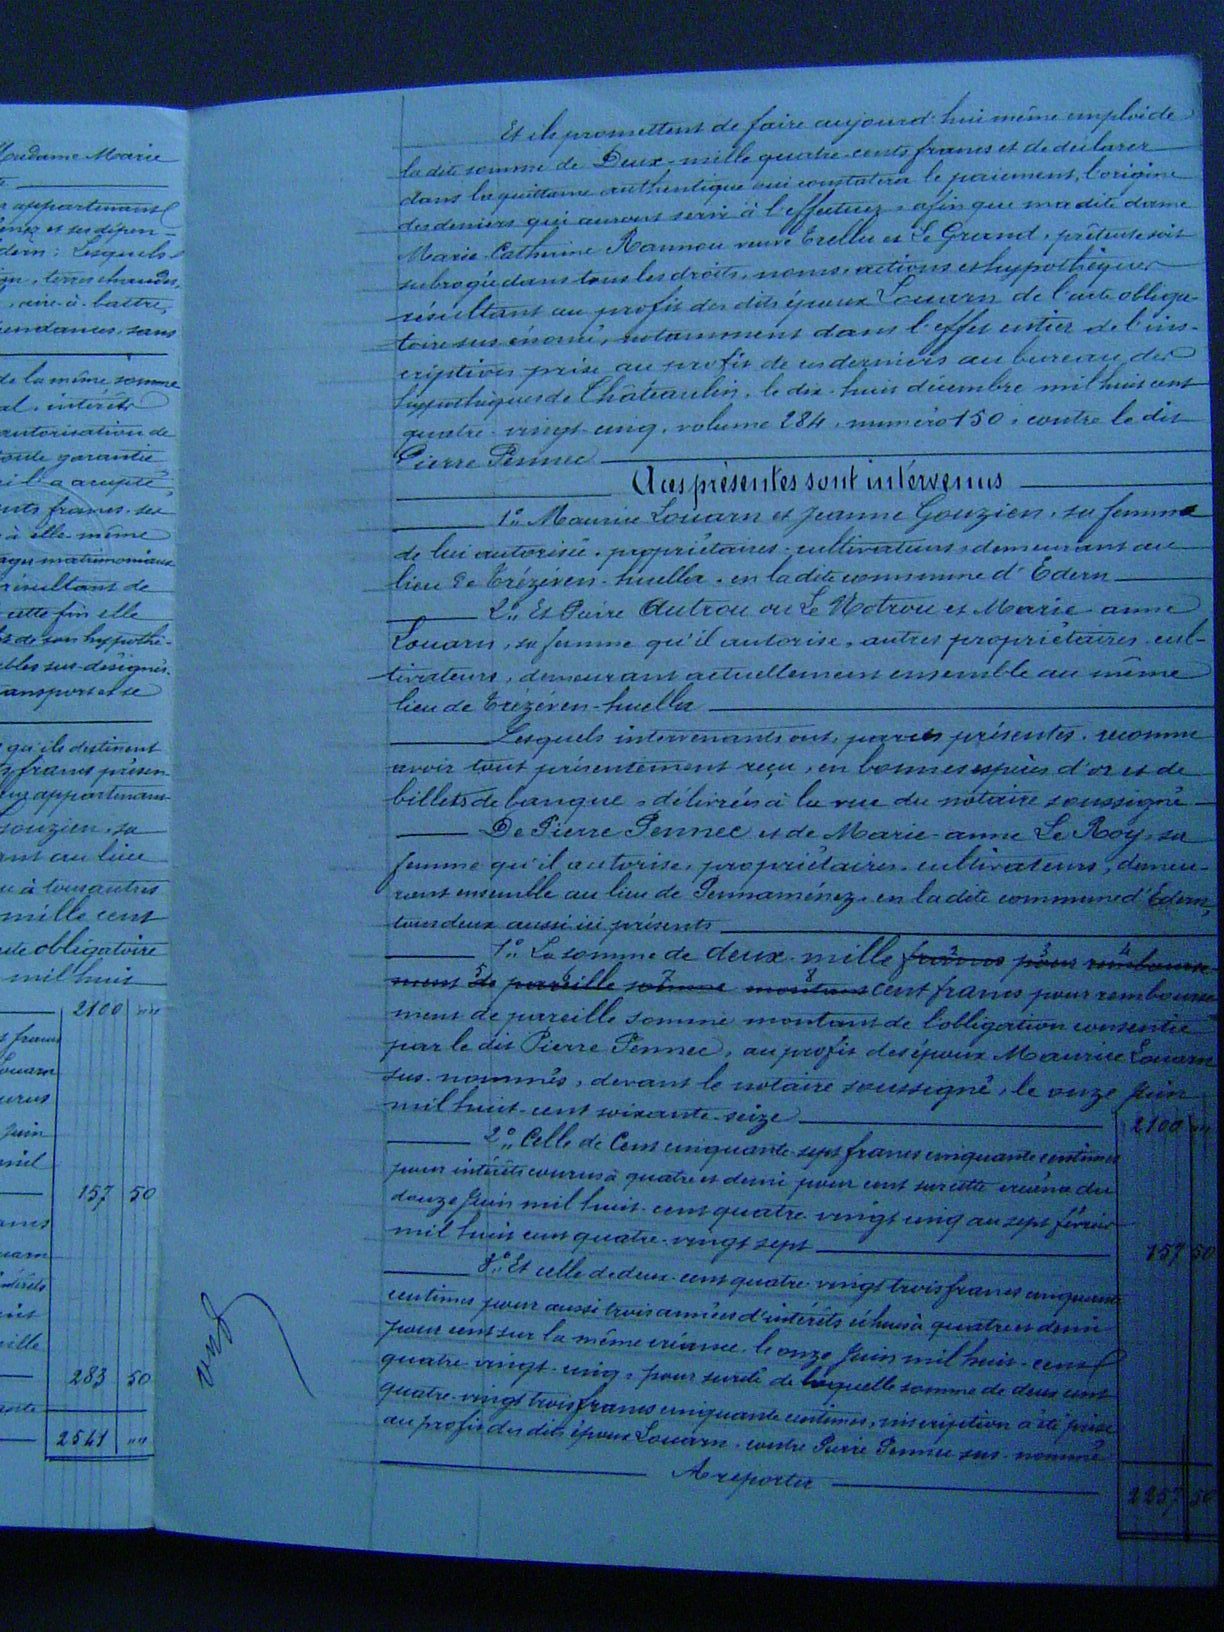 Madame Marie
appartenant
et ses dépen-
Lesquels
terres chaudes,
aire-à-battre,
sans
de la même somme
intérêts
autorisation de
toute garantie
l'a accepté
francs. ses
à elle-même
matrimoniaux
résultant de
cette fin elle
de son hypothé-
sus-désignés.
transport et se
qu'ils destinent
francs présen-
appartenant
Gouzien, sa
au lieu
à tous autres
mille cent
obligatoire
mil huit
2100 ""
francs
Louarn
Juin
mil
157 50
intérêts
283 50
2541 ""
Et ils promettent de faire aujourd'hui même emploi de
la dite somme de Deux-mille quatre-cents francs et de déclarer
dans la quittance authentique qui constatera le paiement, l'origine
des deniers qui auront servi à l'effectuer, afin que ma dite dame
Marie-Catherine Rannou veuve Trellu et Le Grand, prêteuse soit
subrogée dans tous les droits, noms, actions et hypothèques
résultant au profit des dits époux Louarn de l'acte obliga-
toire sus énoncé, notamment dans l'effet entier de l'ins-
cription prise au profit de ces derniers au bureau des
hypothèques de Châteaulin, le dix-huit décembre mil huit cent
quatre-vingt-cinq, volume 284, numéro 150, contre le dit
Pierre Pennec
Aux présentes sont intervenus
1° Maurice Louarn et Jeanne Gouzien, sa femme
de lui autorisée, propriétaires-cultivateurs, demeurant au
lieu de Trézéven-huella, en la dite commune d'Edern
2° Et Pierre Autrou ou Le Notrou et Marie-anne
Louarn, sa femme qu'il autorise, autres propriétaires-cul-
tivateurs, demeurant actuellement ensemble au même
lieu de Trézéven-huella
Lesquels intervenants ont, par ces présentes, reconnu
avoir tout présentement reçu, en bonnes espèces d'or et de
billets de banque, délivrés à la vue du notaire soussigné
De Pierre Pennec et de Marie-anne Le Roy, sa
femme qu'il autorise, propriétaires-cultivateurs, demeu-
rant ensemble au lieu de Pennaménez, en la dite commune d'Edern,
tous deux aussi ici présents
1° La somme de deux-mille francs pour rembourse-
ment de pareille somme montant cent francs pour rembourse-
ment de pareille somme montant de l'obligation consentie
par le dit Pierre Pennec, au profit des époux Maurice Louarn
sus-nommés, devant le notaire soussigné, le onze Juin
mil huit-cent soixante-seize 2100 ""
2° Celle de Cent cinquante-sept francs cinquante centimes
pour intérêts courus à quatre et demi pour cent sur cette créance du
douze Juin mil huit-cent quatre-vingt cinq au sept février
mil huit cent quatre-vingt sept 157 50
3° Et celle de deux-cent quatre-vingt trois francs cinquante
centimes pour aussi trois années d'intérêts échus à quatre et demi
pour cent sur la même créance, le onze Juin mil huit-cent
quatre-vingt-cinq, pour sureté de laquelle somme de deux cent
quatre-vingt trois francs cinquante centimes, inscription a été prise
au profit des dits époux Louarn, contre Pierre Pennec sus-nommé
A reporter 2257 50